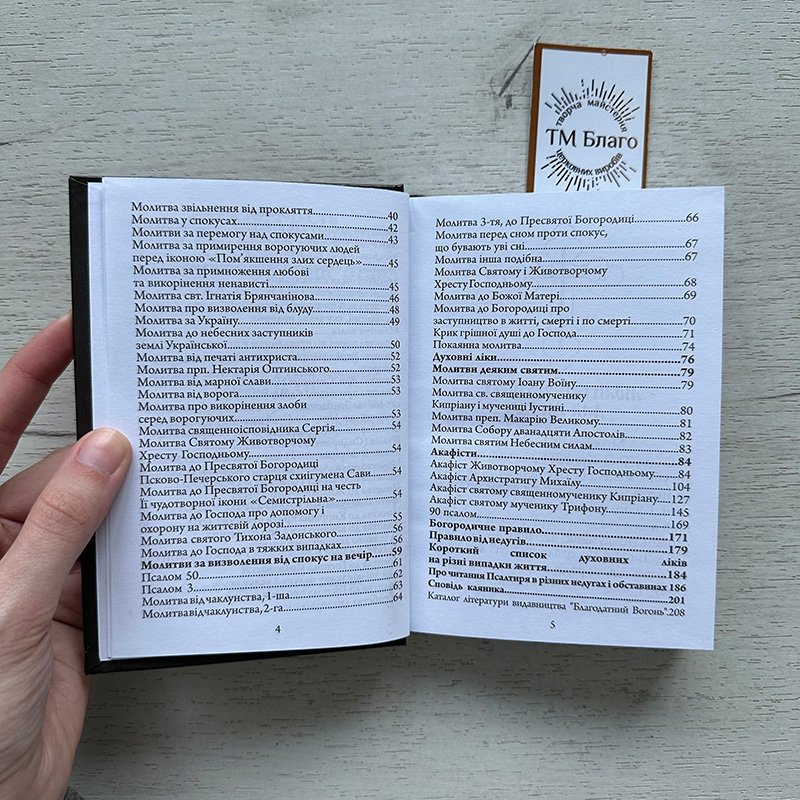 творча майстерня
ТМ Благо
церковних виробів
Молитва звільнення від прокляття...40
Молитва у спокусах...42
Молитви за перемогу над спокусами...43
Молитва за примирення ворогуючих людей
перед іконою «Пом’якшення злих сердець»...45
Молитва за примноження любові
та викорінення ненависті...45
Молитва свт. Ігнатія Брянчанінова...46
Молитва про визволення від блуду...48
Молитва за Україну...49
Молитва до небесних заступників
землі Української...50
Молитва від печаті антихриста...52
Молитва прп. Нектарія Оптинського...52
Молитва від марної слави...53
Молитва від ворога...53
Молитва про викорінення злоби
серед ворогуючих...53
Молитва священноісповідника Сергія...54
Молитва Святому Животворчому
Хресту Господньому...54
Молитва до Пресвятої Богородиці
Псково-Печерського старця схіігумена Сави...54
Молитва до Пресвятої Богородиці на честь
Її чудотворної ікони «Семистрільна»...54
Молитва до Господа про допомогу і
охорону на життєвій дорозі...55
Молитва святого Тихона Задонського...56
Молитва до Господа в тяжких випадках...56
Молитви за визволення від спокус на вечір...59
Псалом 50...61
Псалом 3...62
Молитва від чаклунства, 1-ша...63
Молитва від чаклунства, 2-га...64
4
Молитва 3-тя, до Пресвятої Богородиці...66
Молитва перед сном проти спокус,
що бувають уві сні...67
Молитва інша подібна...67
Молитва Святому і Животворчому
Хресту Господньому...68
Молитва до Божої Матері...69
Молитва до Богородиці про
заступництво в житті, смерті і по смерті...70
Крик грішної душі до Господа...71
Покаянна молитва...74
Духовні ліки...76
Молитви деяким святим...79
Молитва святому Іоану Воїну...79
Молитва св. священномученику
Кипріану і мучениці Іустині...80
Молитва преп. Макарію Великому...81
Молитва Собору дванадцяти Апостолів...82
Молитва святим Небесним силам...83
Акафісти...84
Акафіст Животворчому Хресту Господньому...84
Акафіст Архистратигу Михаїлу...104
Акафіст святому священномученику Кипріану...127
Акафіст святому мученику Трифону...145
90 псалом...169
Богородичне правило...171
Правило від недугів...179
Короткий список духовних ліків
на різні випадки життя...184
Про читання Псалтиря в різних недугах і обставинах 186
Сповідь каяника...201
Каталог літератури видавництва "Благодатний Вогонь".208
5